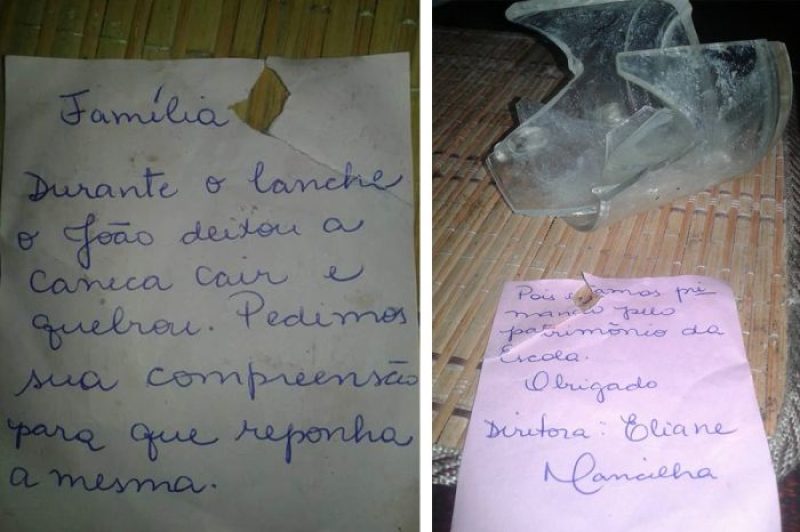 Família
Durante o lanche
o João deixou a
caneca cair e
quebrou. Pedimos
sua compreensão
para que reponha
a mesma.
Pois estamos pri-
mando pelo
patrimônio da
Escola.
Obrigado
Diretora: Eliane
Mancilha